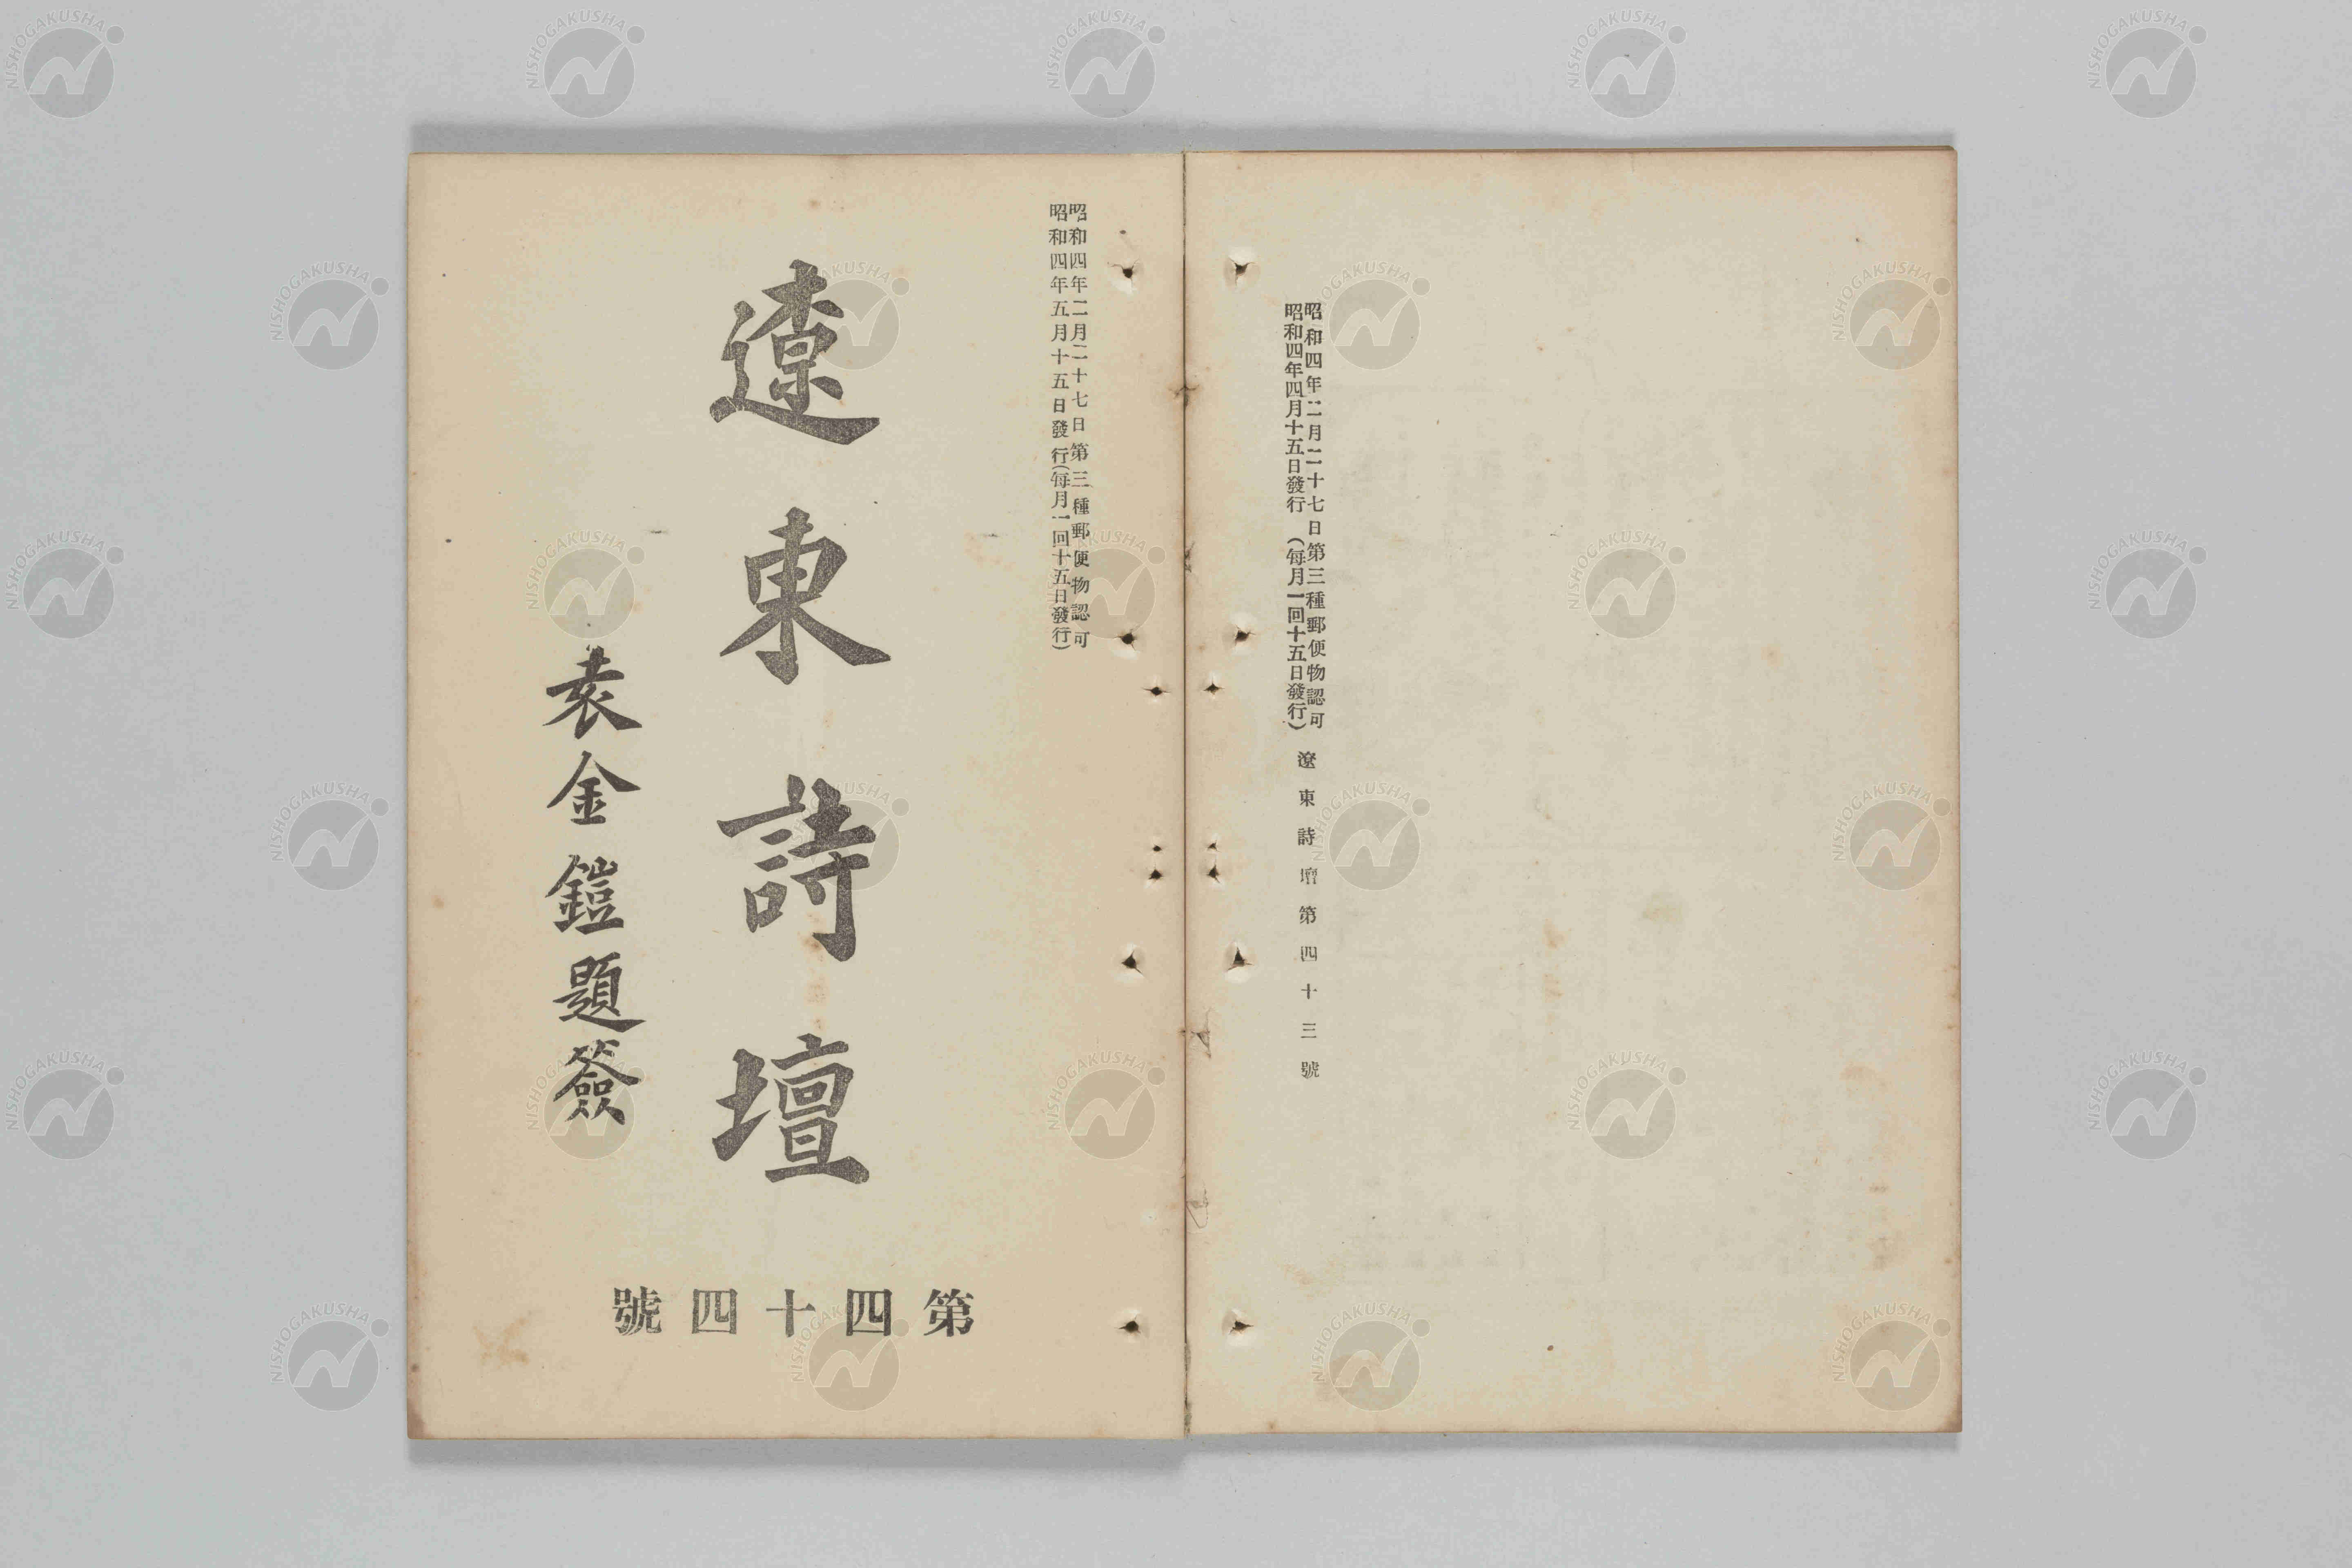 昭和四年二月二十七日第三種郵便物認可
昭和四年四月十五日發行（每月一回十五日發行）
遼東詩壇第四十三號
昭和四年二月二十七日第三種郵便物認可
昭和四年五月十五日發行（每月一回十五日發行）
遼東詩壇
袁金鎧題簽
第四十四號
NISHOGAKUSHA